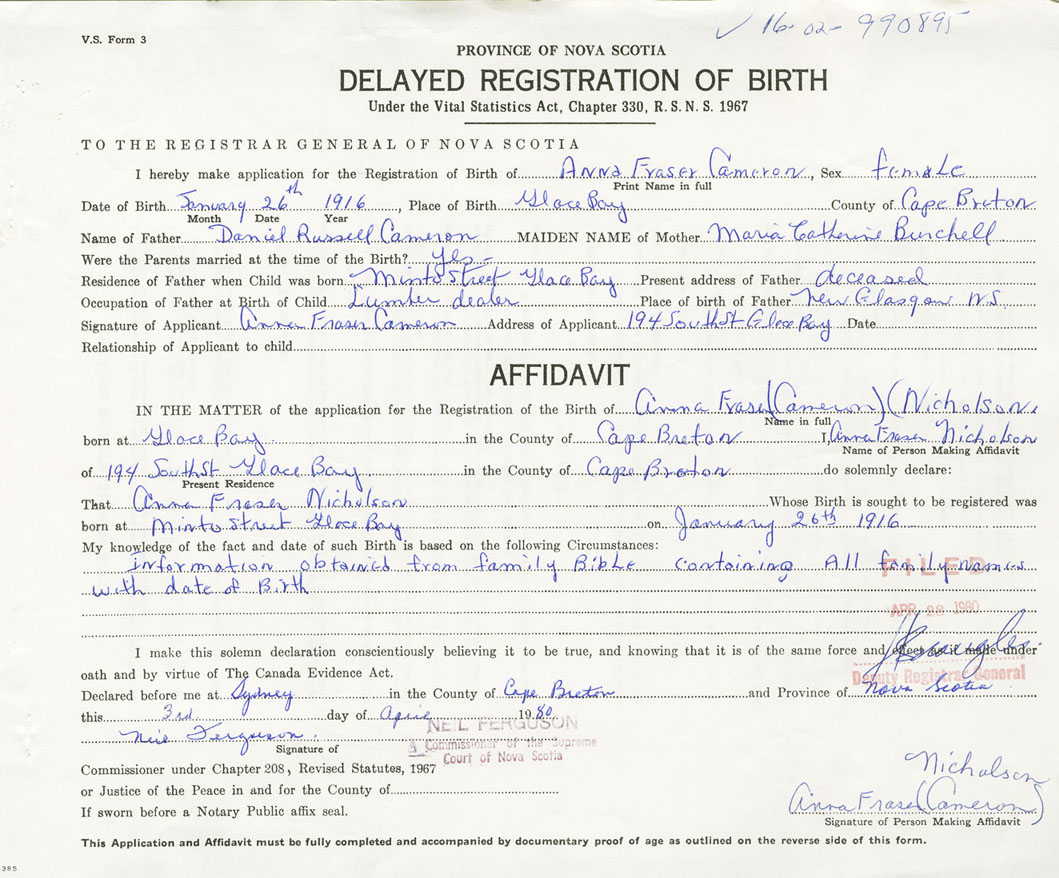 16-02-990895
V.S. Form 3
PROVINCE OF NOVA SCOTIA
DELAYED REGISTRATION OF BIRTH
Under the Vital Statistics Act, Chapter 330, R.S.N.S. 1967
TO THE REGISTRAR GENERAL OF NOVA SCOTIA
I hereby make application for the Registration of Birth of Anna Fraser Cameron, Sex female
Print Name in full
Date of Birth January 26th 1916, Place of Birth Glace Bay County of Cape Breton
Month Date Year
Name of Father Daniel Russell Cameron MAIDEN NAME of Mother Maria Catherine Burchell
Were the Parents married at the time of the Birth? Yes -
Residence of Father when Child was born Minto Street Glace Bay Present address of Father deceased
Occupation of Father at Birth of Child Lumber dealer Place of birth of Father New Glasgow N.S.
Signature of Applicant Anna Fraser Cameron Address of Applicant 194 South St Glace Bay Date
Relationship of Applicant to child
AFFIDAVIT
IN THE MATTER of the application for the Registration of the Birth of Anna Fraser (Cameron) (Nicholson
Name in full
born at Glace Bay in the County of Cape Breton I, Anna Fraser Nicholson
Name of Person Making Affidavit
of 194 South St Glace Bay in the County of Cape Breton do solemnly declare:
Present Residence
That Anna Fraser Nicholson Whose Birth is sought to be registered was
born at Minto Street Glace Bay on January 26th 1916
My knowledge of the fact and date of such Birth is based on the following Circumstances:
information obtained from family Bible containing All family names
with date of Birth
FILED
APR 28 1980
I make this solemn declaration conscientiously believing it to be true, and knowing that it is of the same force and effect as if made under
oath and by virtue of The Canada Evidence Act.
Deputy Registrar General
Declared before me at Sydney in the County of Cape Breton and Province of Nova Scotia
this 3rd day of April 1980
NEIL FERGUSON
Neil Ferguson
A Commissioner of the Supreme
Court of Nova Scotia
Signature of
Commissioner under Chapter 208, Revised Statutes, 1967
or Justice of the Peace in and for the County of
Nicholson
Anna Fraser (Cameron)
If sworn before a Notary Public affix seal.
Signature of Person Making Affidavit
This Application and Affidavit must be fully completed and accompanied by documentary proof of age as outlined on the reverse side of this form.
385